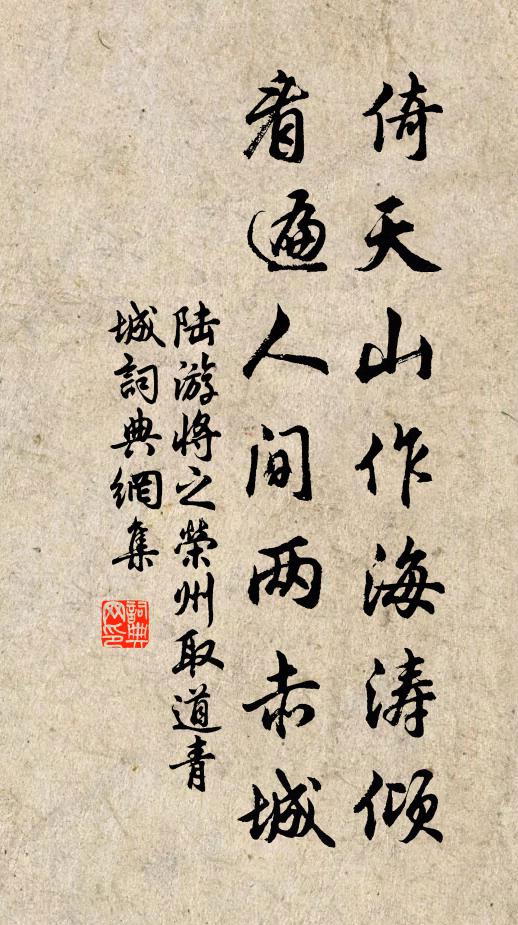 倚天山作海涛倾
看遍人间两赤城
陆游将之荣州取道青
城词典网集
词典
网印